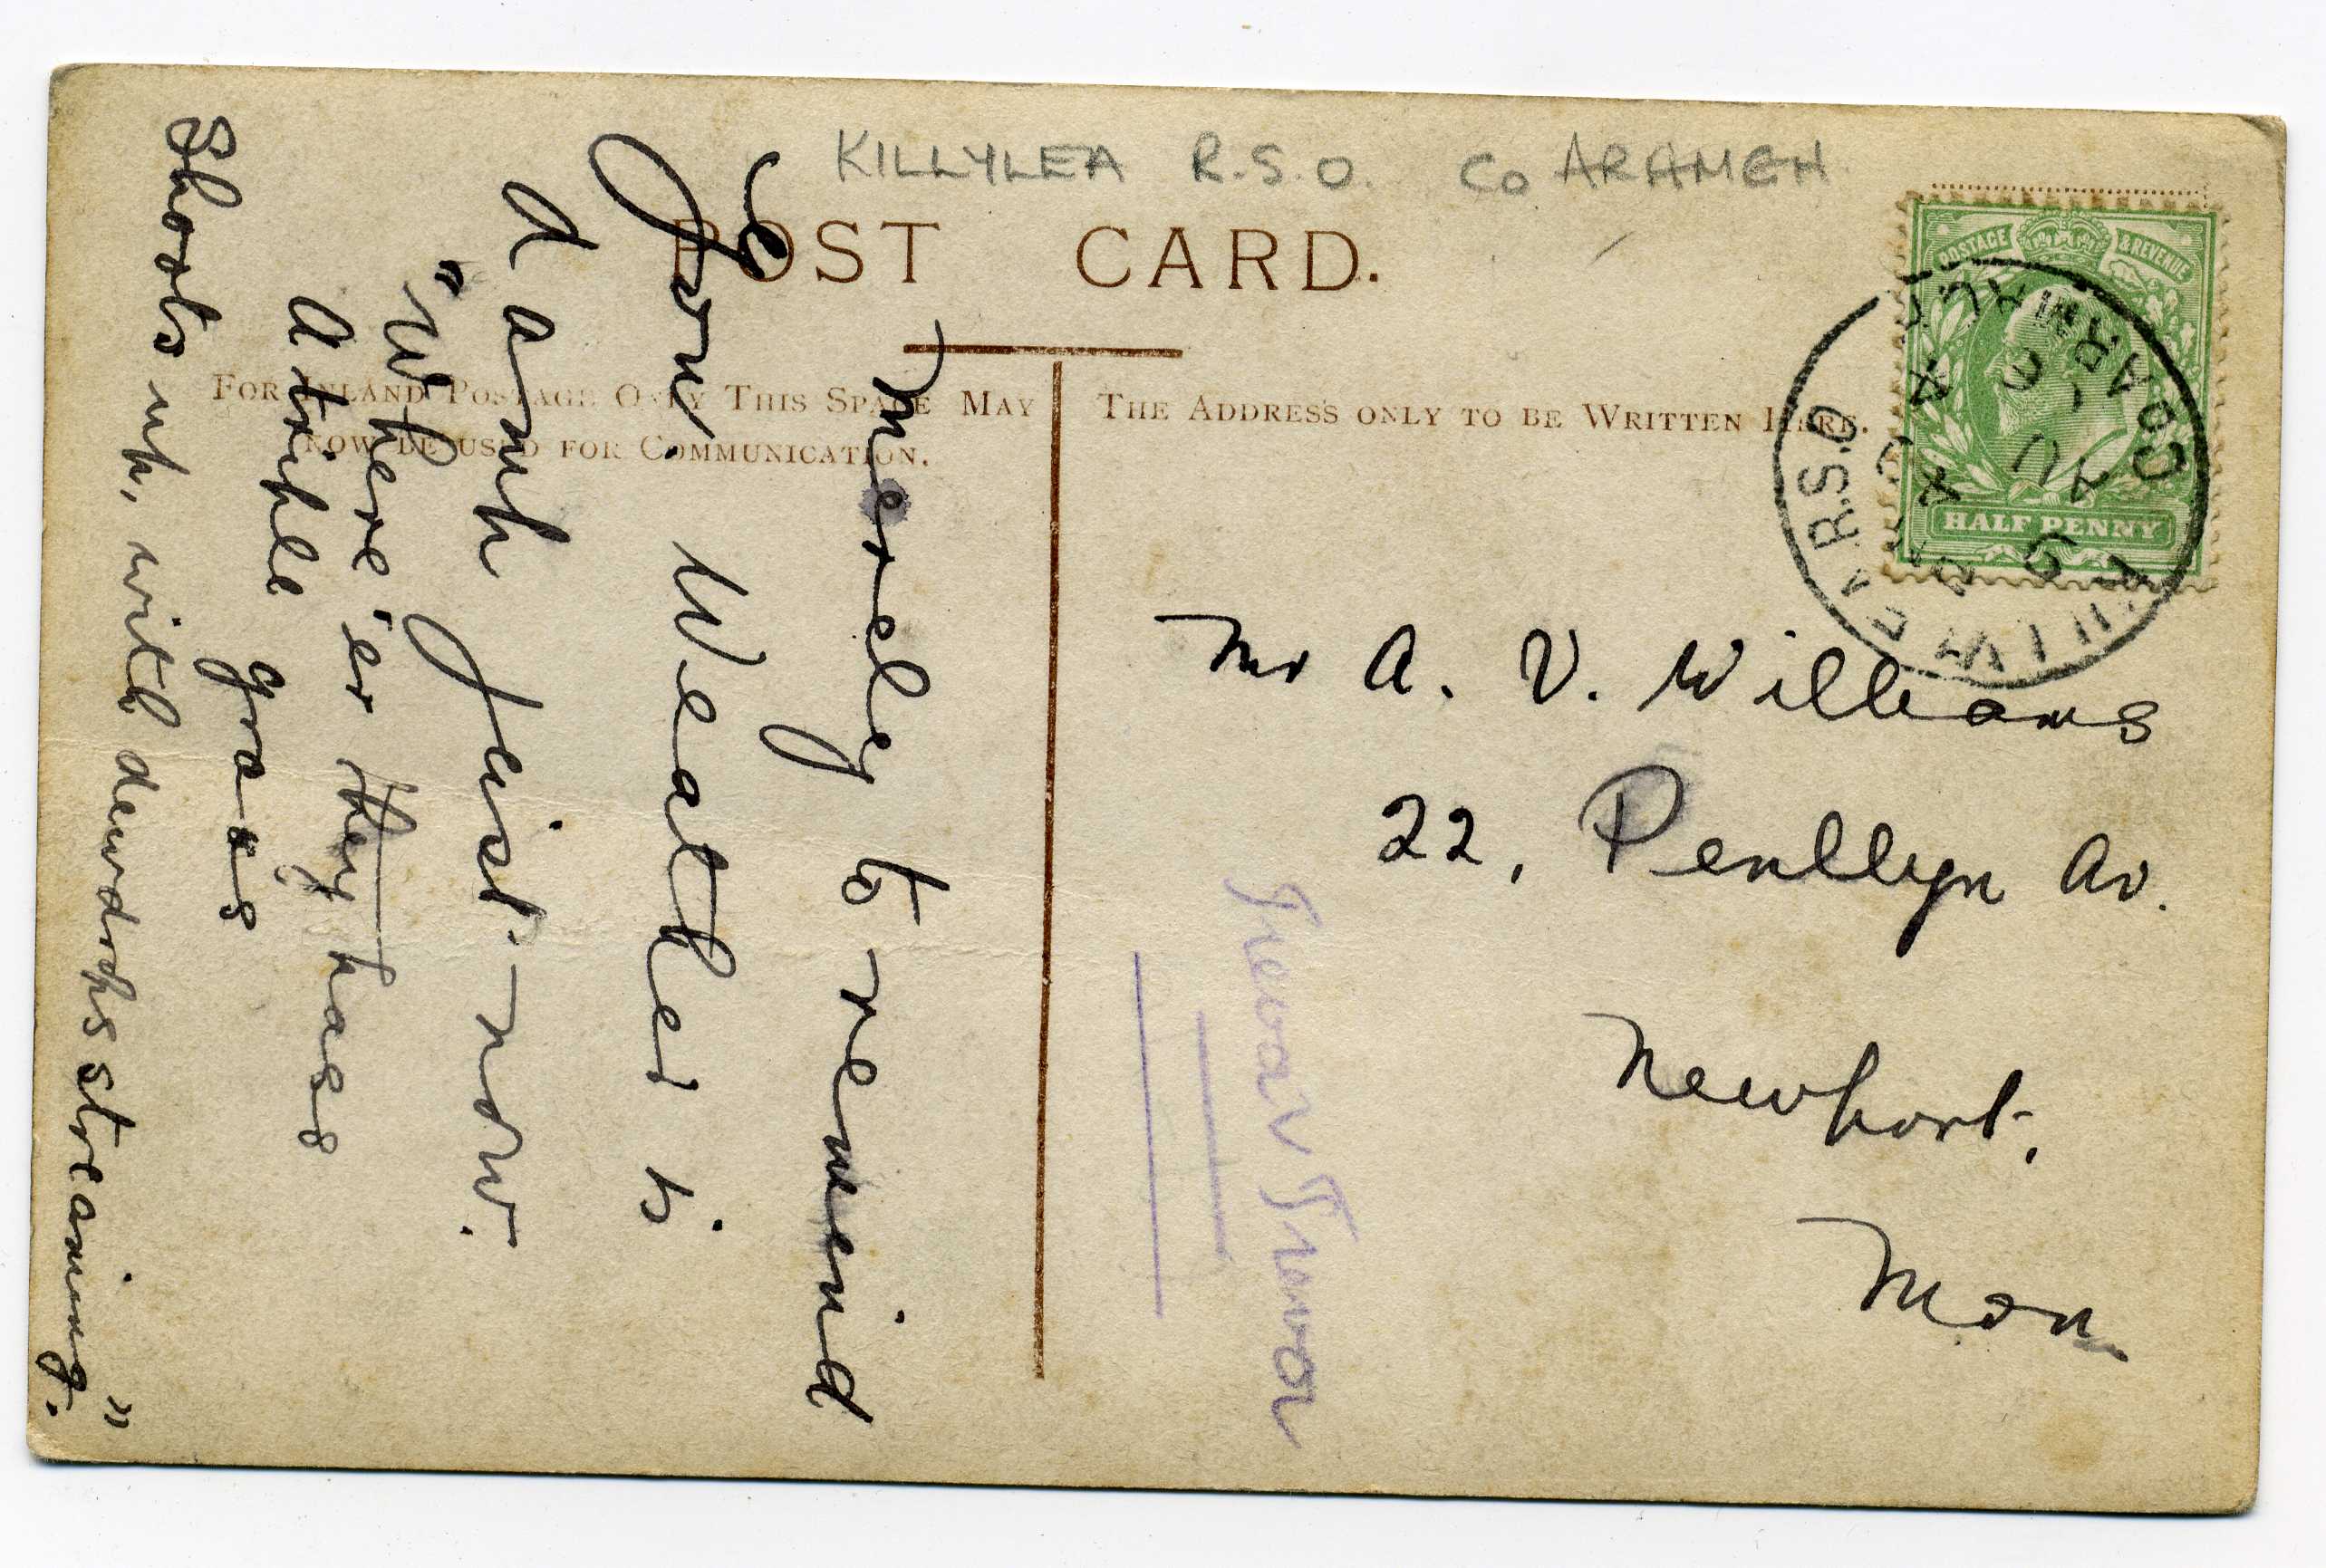 KILLYLEA R.S.O. Co ARAMGH
POST CARD.
FOR INLAND POSTAGE ONLY THIS SPACE MAY
NOW BE USED FOR COMMUNICATION.
THE ADDRESS ONLY TO BE WRITTEN HERE.
POSTAGE & REVENUE
HALF PENNY
R.S.O
Co ARMAGH
Merely to remind
you Weather is
damp just now.
"Where'er they pass
A triple grass
Shoots up, with dewdrops streaming."
Mr A. V. Williams
22, Penllyn Av.
Newport,
Mon
Trevor